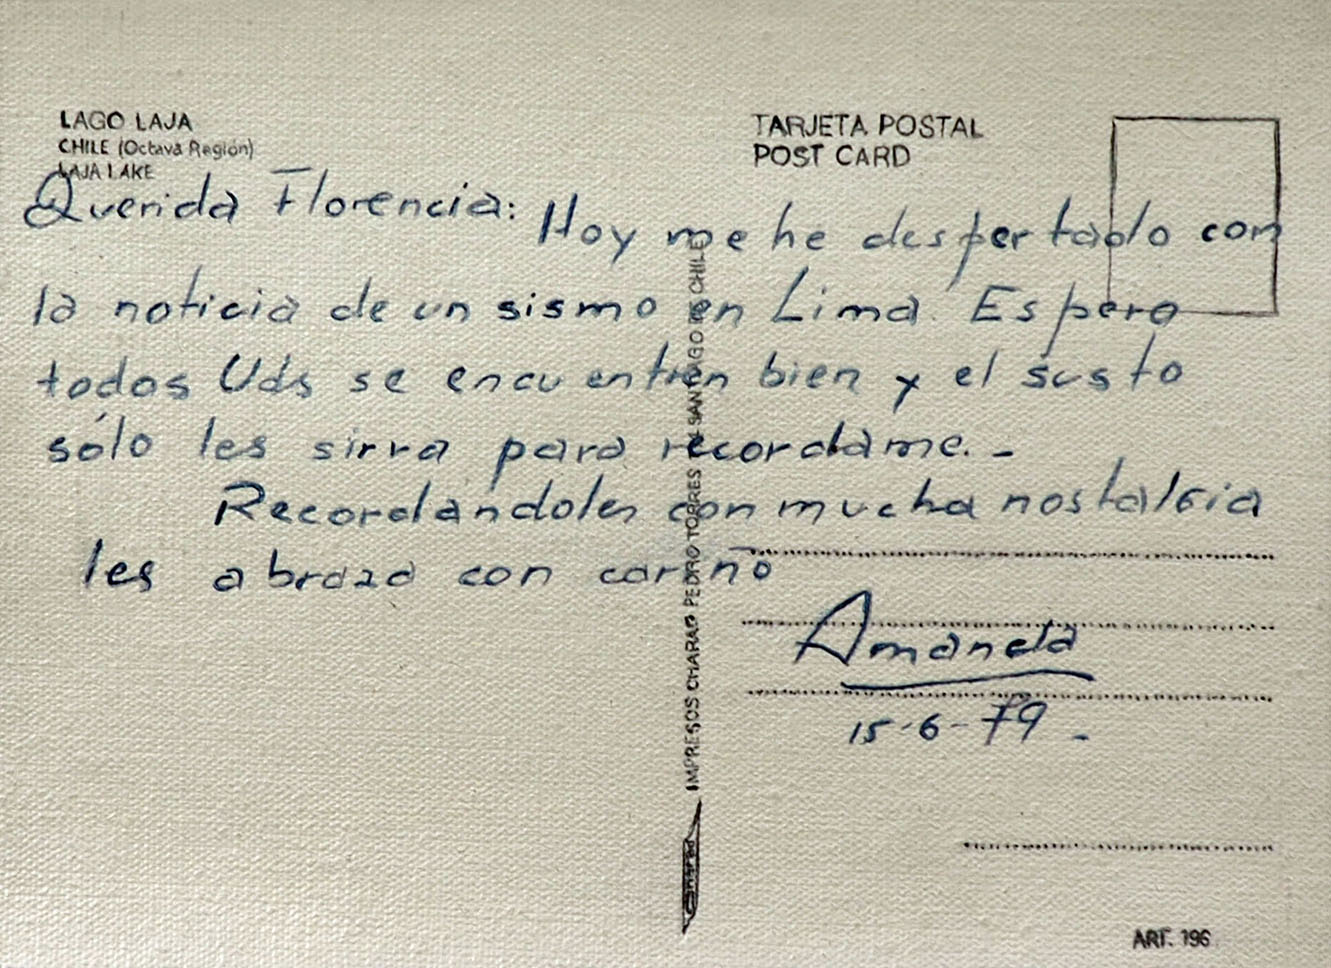 LAGO LAJA
CHILE (Octava Región)
LAJA LAKE
TARJETA POSTAL
POST CARD
Querida Florencia: Hoy me he despertado con
la noticia de un sismo en Lima. Espero
todos Uds se encuentren bien y el susto
sólo les sirva para recordame. -
Recordándoles con mucha nostalgia
les abraza con cariño
Amanda
15-6-79-
IMPRESOS CHARAD PEDRO TORRES SANTIAGO DE CHILE
ART. 196